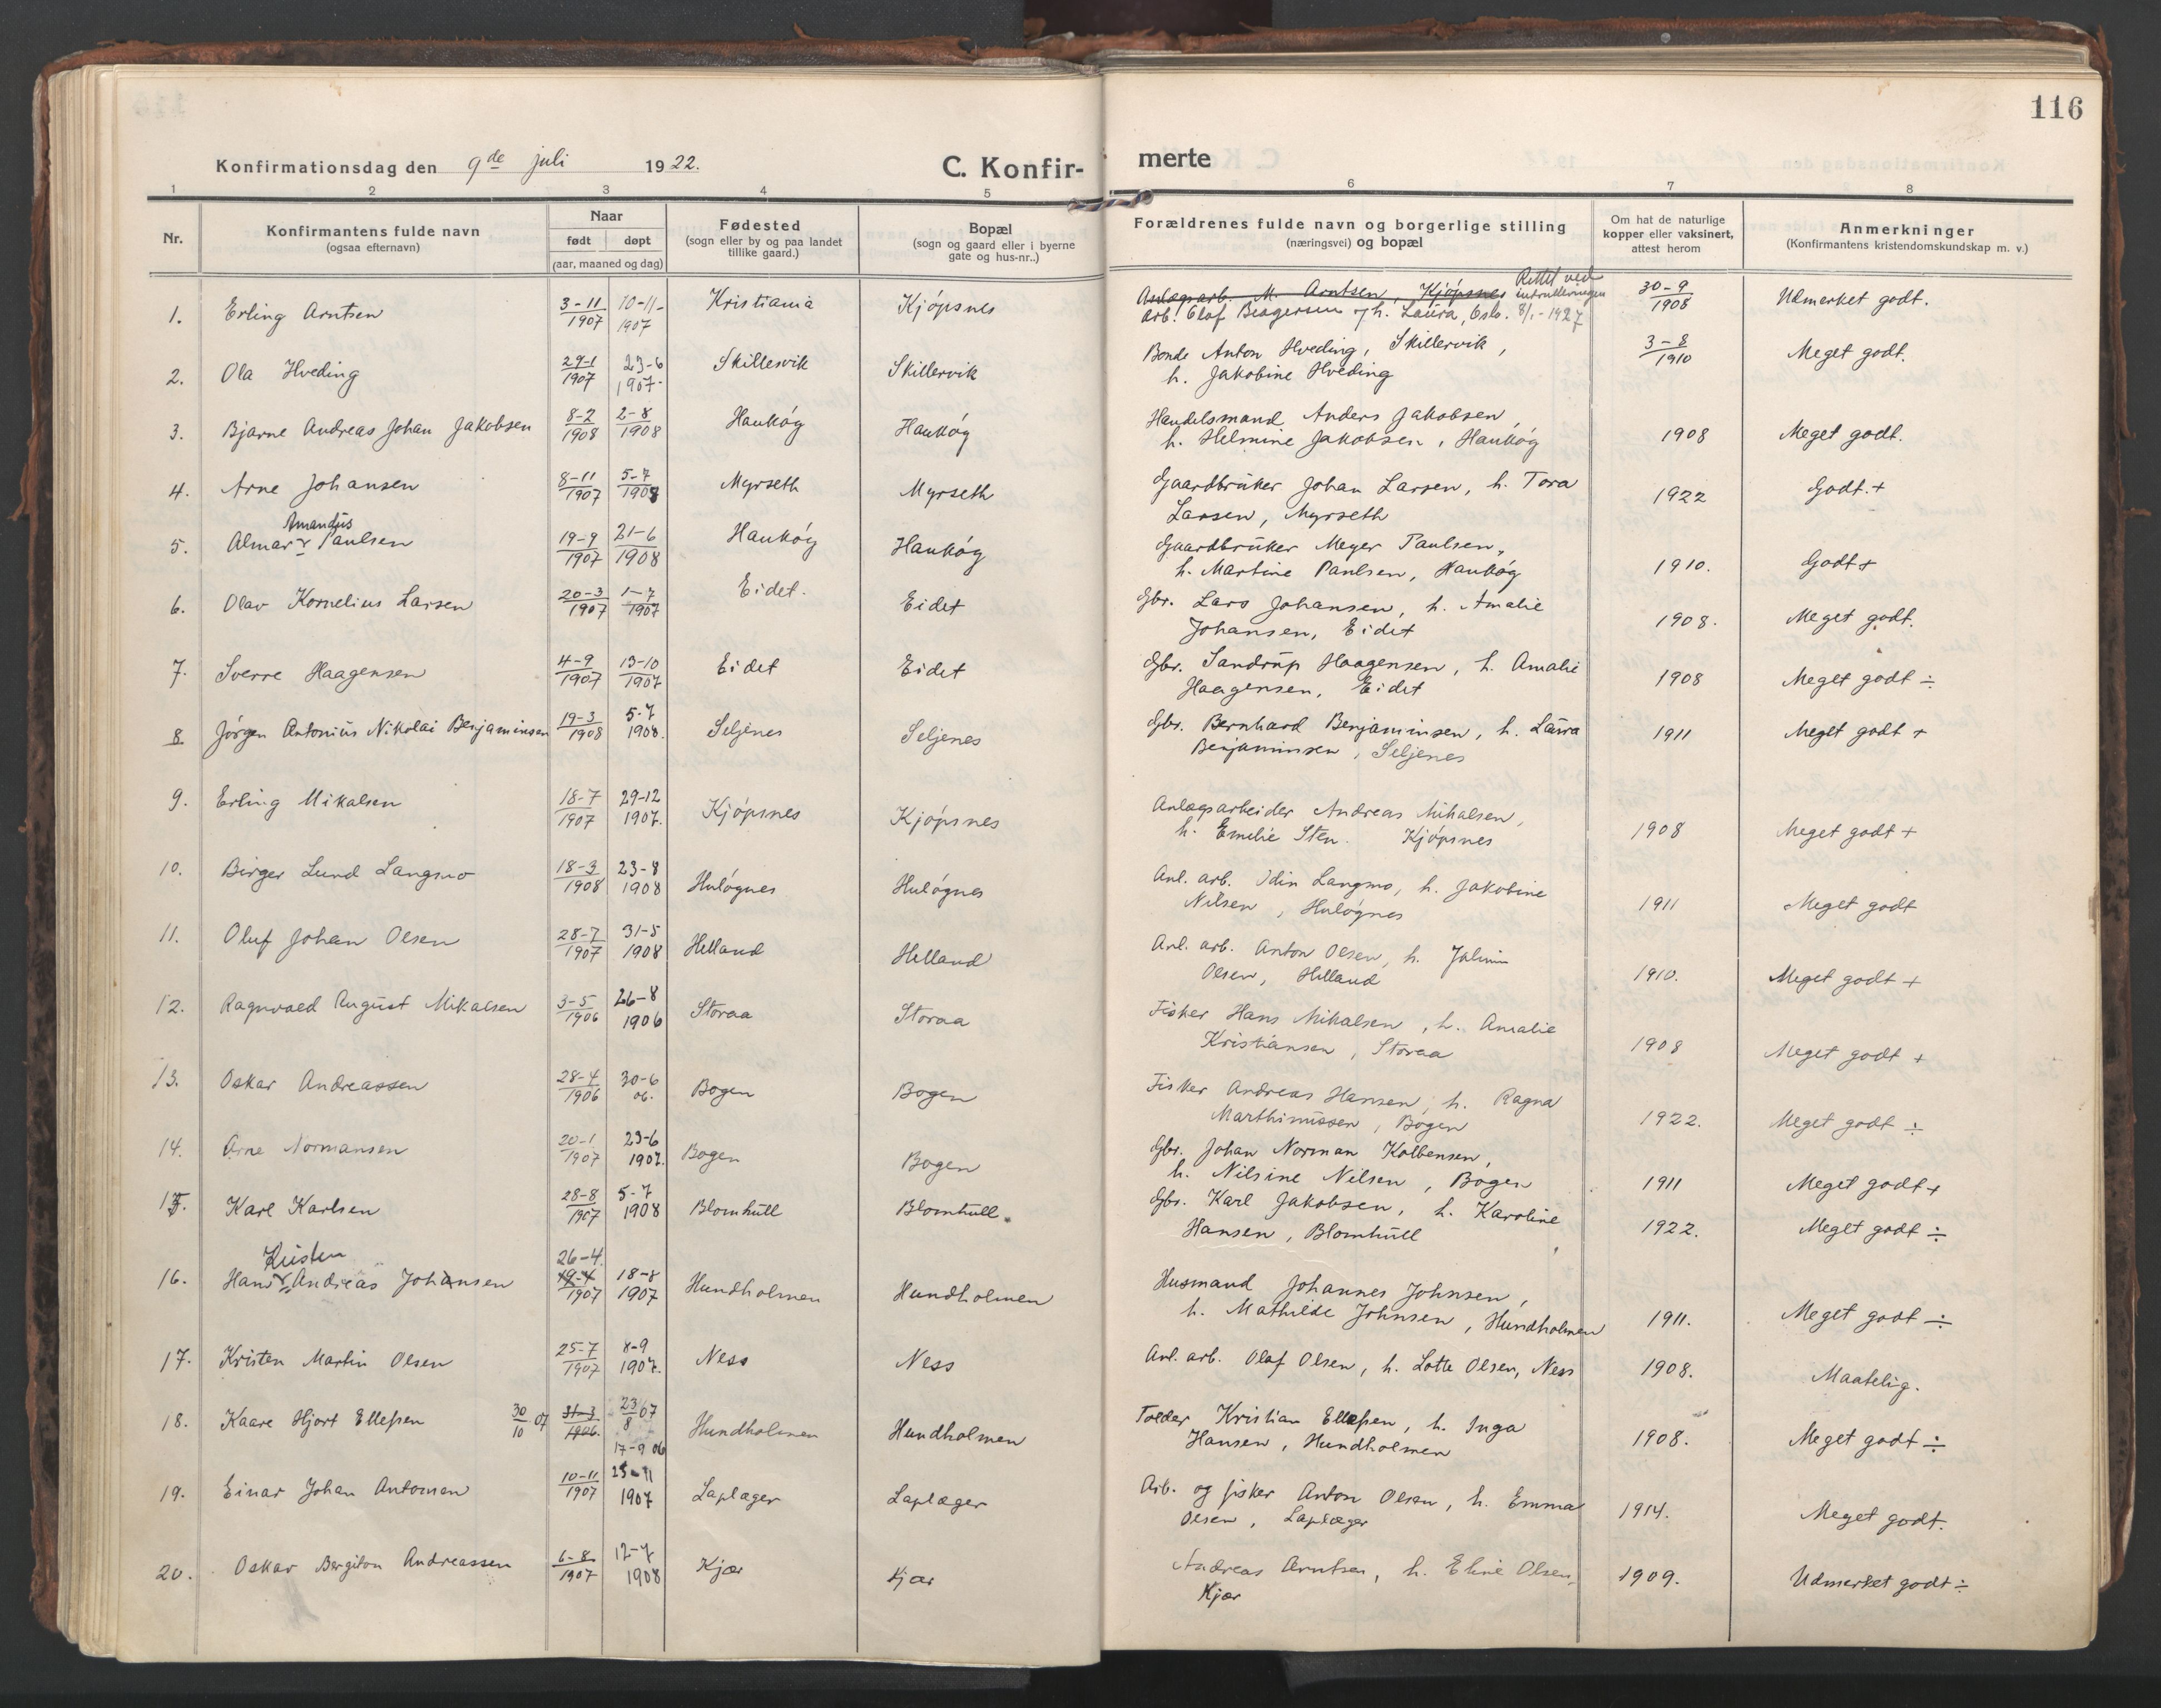 116
Konfirmationsdag den 9de juli 1922.
C. Konfirmerte
1 2 3 4 5 6 7 8
Nr.
Konfirmantens fulde navn
(ogsaa efternavn)
Naar
født døpt
(aar, maaned og dag)
Fødested
(sogn eller by og paa landet
tillike gaard.)
Bopæl
(sogn og gaard eller i byerne
gate og hus-nr..)
Forældrenes fulde navn og borgerlige stilling
(næringsvei) og bopæl
Om hat de naturlige
kopper eller vaksinert,
attest herom
Anmerkninger
(Konfirmantens kristendomskundskap m. v.)
1. Erling Arntsen 3-11 1907 10-11- 1907 Kristiania Kjøpsnes Anlægsarb. M. Arntsen, Kjøpsnes Rettet ved
arb. Olaf h. Laura, Oslo. 8/1-1927 30-9 1908 Udmerket godt.
2. Ola Hveding 29-1 1907 23-6 1907. Skillesvik Skillervik Bonde Anton Hveding, Skillervik,
h. Jakobine Hveding 3-8 1910 Meget godt.
3. Bjarne Andreas Johan Jakobsen 8-2 1908 2-8 1908 Haukøy Haukøy Handelsmand Anders Jakobsen,
h. Helmine Jakobsen, Haukøy 1908 Meget godt.
4. Arne Johansen 8-11 1907 5-7 1908 Myrseth Myrseth Gaardbruker Johan Larsen, h. Tora
Larsen, Myrseth 1922 Godt.+
Amandus
5. Almar Paulsen 19-9 1907 21-6 1908 Haukøy Haukøy Gaardbruker Meyer Paulsen,
h. Martine Paulsen, Haukøy 1910. Godt+
6. Olav Kornelius Larsen 20-3 1907 1-7 1907 Eidet. Eidet Gbr. Lars Johansen, h. Amalie
Johansen, Eidet 1908. Meget godt.
7. Sverre Haagensen 4-9 1907 13-10 1907 Eidet Eidet Gbr. Sandrup Haagensen, h. Amalie
Haagensen, Eidet 1908 Meget godt ÷
8 Jørgen Antonius Nikolai Benjaminsen 19-3 1908 5-7 1908. Seljenes Seljenes Gbr. Bernhard Benjaminsen, h. Laura
Benjaminsen, Seljenes 1911 Meget godt +
9. Erling Mikalsen 18-7 1907 29-12 1907. Kjøpsnes Kjøpsnes Anlægsarbeider Andreas Mikalsen,
h. Emelie Sten. Kjøpsnes 1908 Meget godt +
10. Birger Lund Langmo 18-3 1908 23-8 1908 Huløynes Huløynes Anl. arb. Idin Langmo, h. Jakobine
Nilsen, Huløynes 1911 Meget godt
11. Oluf Johan Olsen 28-7 1907 31-5 1908 Helland Helland Anl. arb. Anton Olsen, h.
Olsen, Helland 1910. Meget godt +
12. Ragnvald August Mikalsen 3-5 1906 26-8 1906 Storaa Storaa Fisker Hans Mikalsen, h. Amalie
Kristiansen, Storaa 1908 Meget godt +
13. Oskar Andreassen 28-4 1906 30-6 06. Bogen Bogen Fisker Andreas Hansen, h. Ragna
Marthinussen, Bogen 1922. Meget godt ÷
14. Arne Normansen 20-1 1907 23-6 1907. Bogen Bogen Gbr. Johan Norman Kolbensen,
h. Nilsine Nilsen, Bogen 1911 Meget godt+
15. Karl Karlsen 28-8 1907 5-7 1908 Blomhull Blomhull. Gbr. Karl Jakobsen, h. Karoline
Hansen, Blomhull 1922. Meget godt ÷
Kristen 26-4
16. Hans Andreas Johansen 19-4 1907 18-8 1907 Hundholmen Hundholmen Husmand Johannes Johnsen,
h. Mathilde Johnsen, Hundholmen 1911. Meget godt ÷
17. Kristen Martin Olsen 25-7 1907 8-9 1907. Ness Ness Anl. arb. Olaf Olsen, h. Lotte Olsen, Ness 1908. Maatelig.
18. Kaare Hjort Ellefsen 30/10 07 31-3 1906. 23/8 07 17-9 06 Hundholmen Hundholmen Tolder Kristian Ellefsen, h. Inga
Hansen, Hundholmen 1908. Meget godt ÷
19. Einar Johan Antonsen 10-11 1907 25-11 1907 Laplæger Laplæger Arb. og fisker Anton Olsen, h. Emma
Olsen, Laplæger 1914. Meget godt.
20. Oskar Bergiton Andreassen 6-8 1907 12-7 1908 Kjær Kjær Andreas Arntsen, h. Eline Olsen,
Kjær 1909. Udmerket godt÷